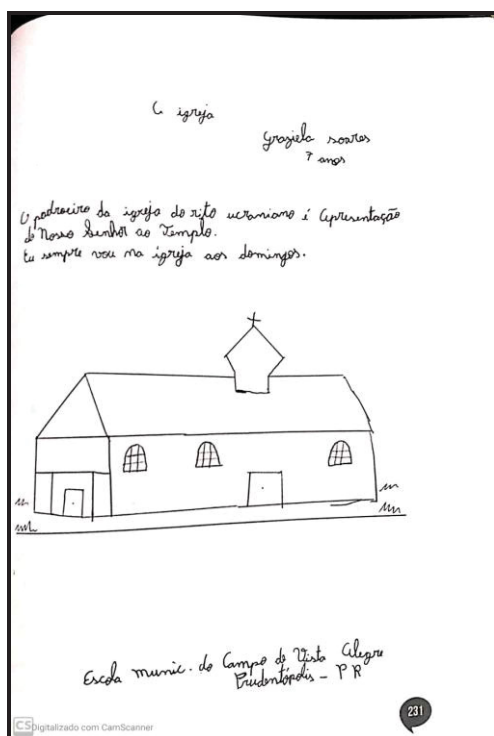 A igreja
Graziela soares
7 anos
O padroeiro da igreja do rito ucraniano é Apresentação
de Nosso Senhor ao Templo.
Eu sempre vou na igreja aos domingos.
Escola munic. do Campo de Vista Alegre
Prudentópolis - PR
231
CS Digitalizado com CamScanner